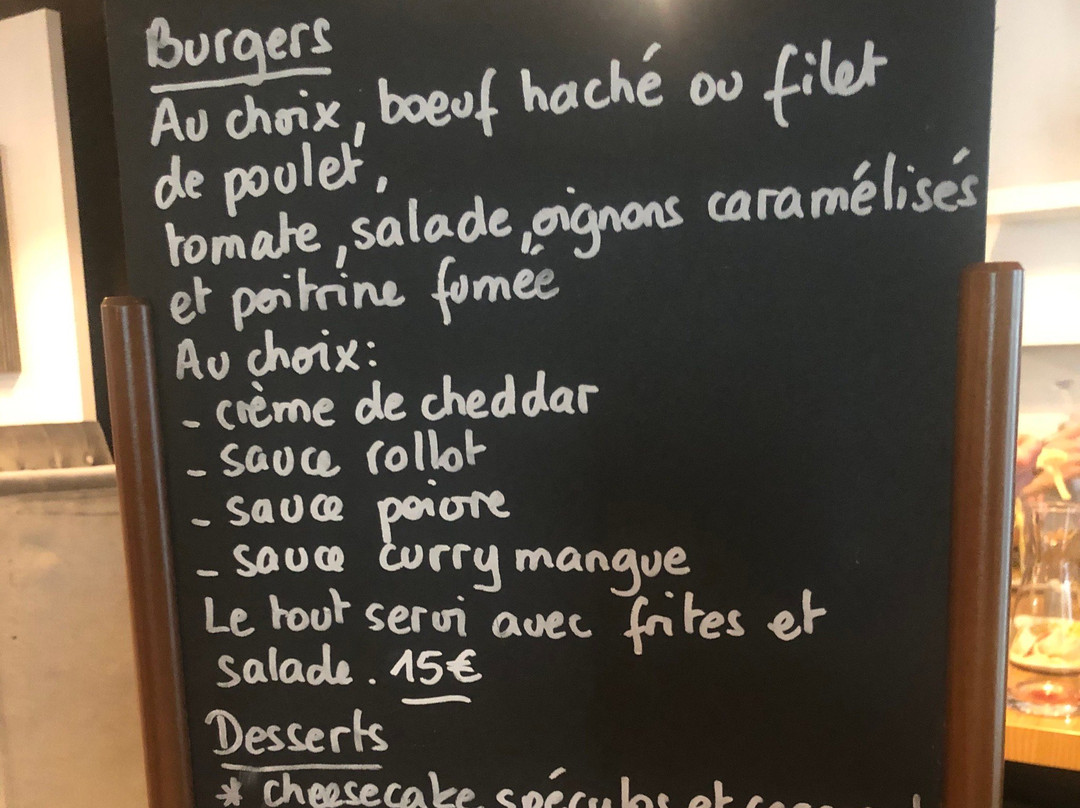 Burgers
Au choix, boeuf haché ou filet
de poulet,
tomate, salade, oignons caramélisés
et poitrine fumée
Au choix:
- crème de cheddar
- sauce rollot
- sauce poivre
- sauce curry mangue
Le tout servi avec frites et
salade. 15€
Desserts
* cheesecake spéculos et